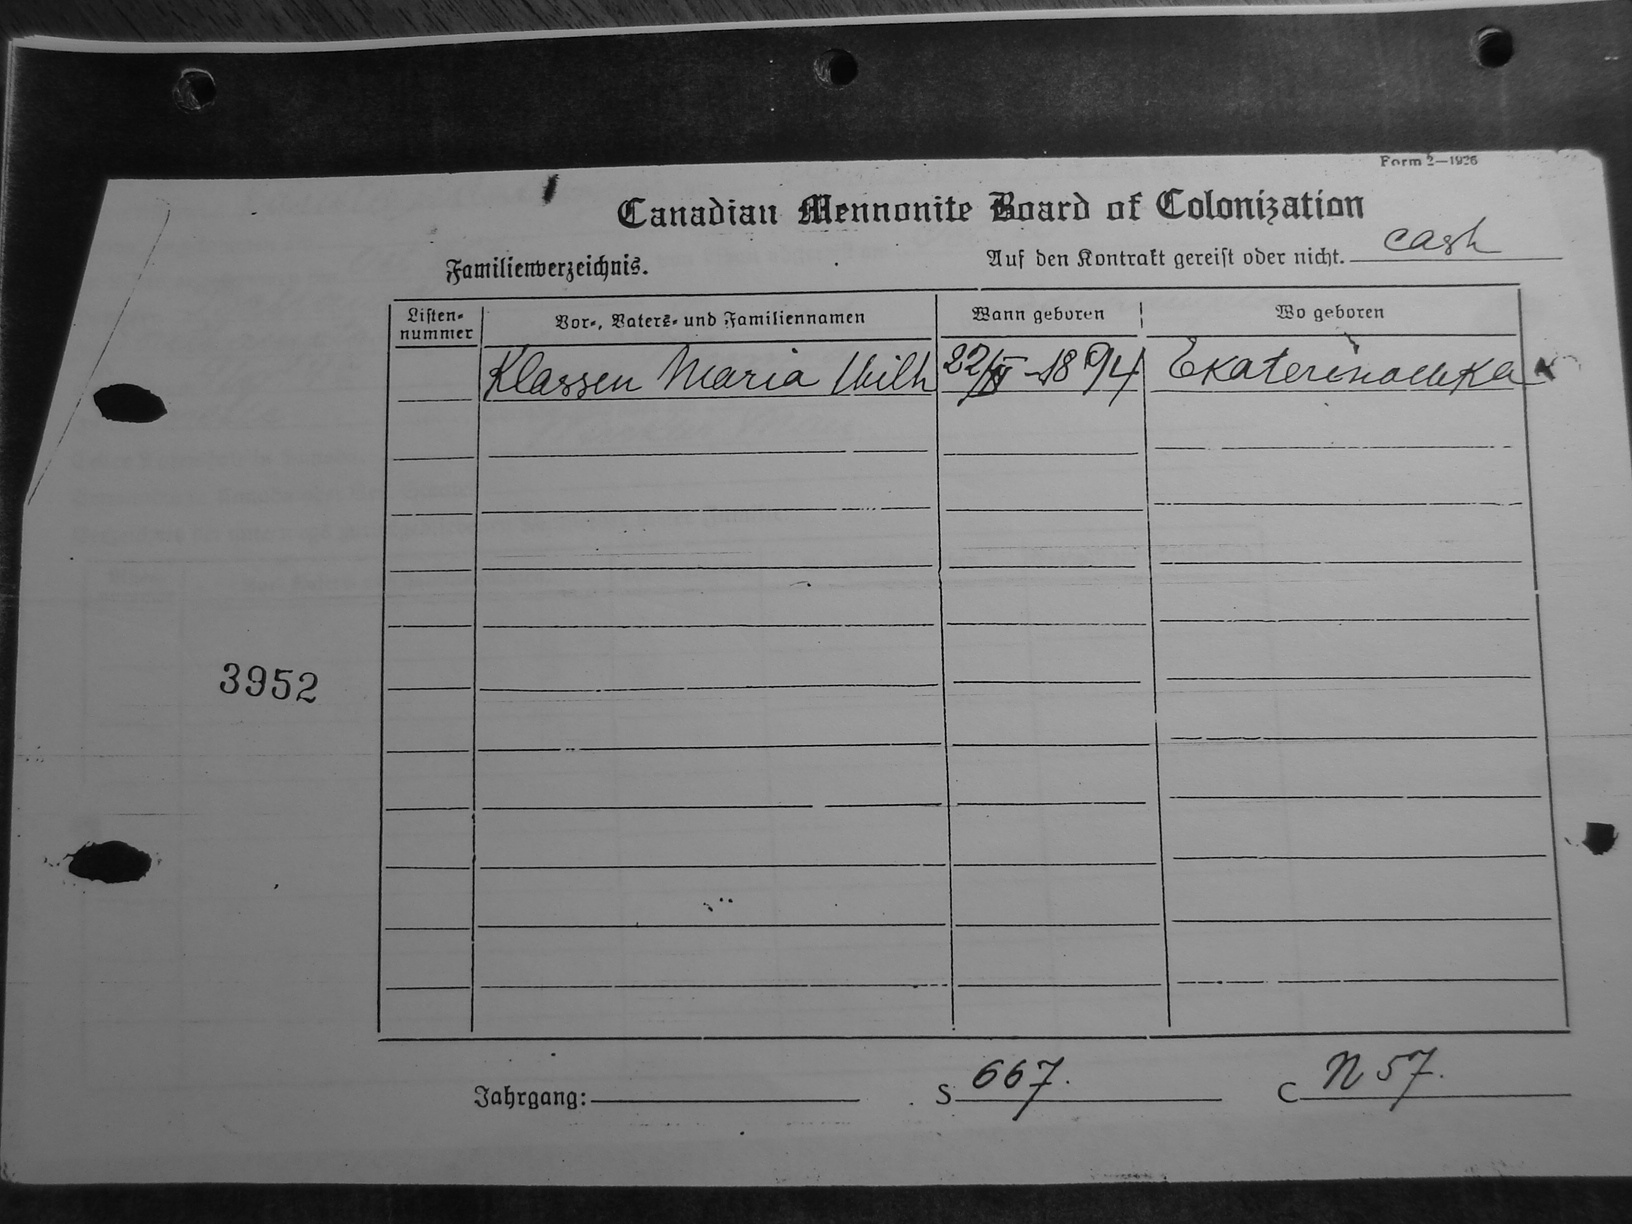 Form 2—1926
Canadian Mennonite Board of Colonization
Familienverzeichnis.
Auf den Kontrakt gereist oder nicht. cash
Listen-
nummer
Vor-, Vaters- und Familiennamen
Wann geboren
Wo geboren
Klassen Maria Wilh
22 1894
3952
Jahrgang:
S 667.
C N 57.